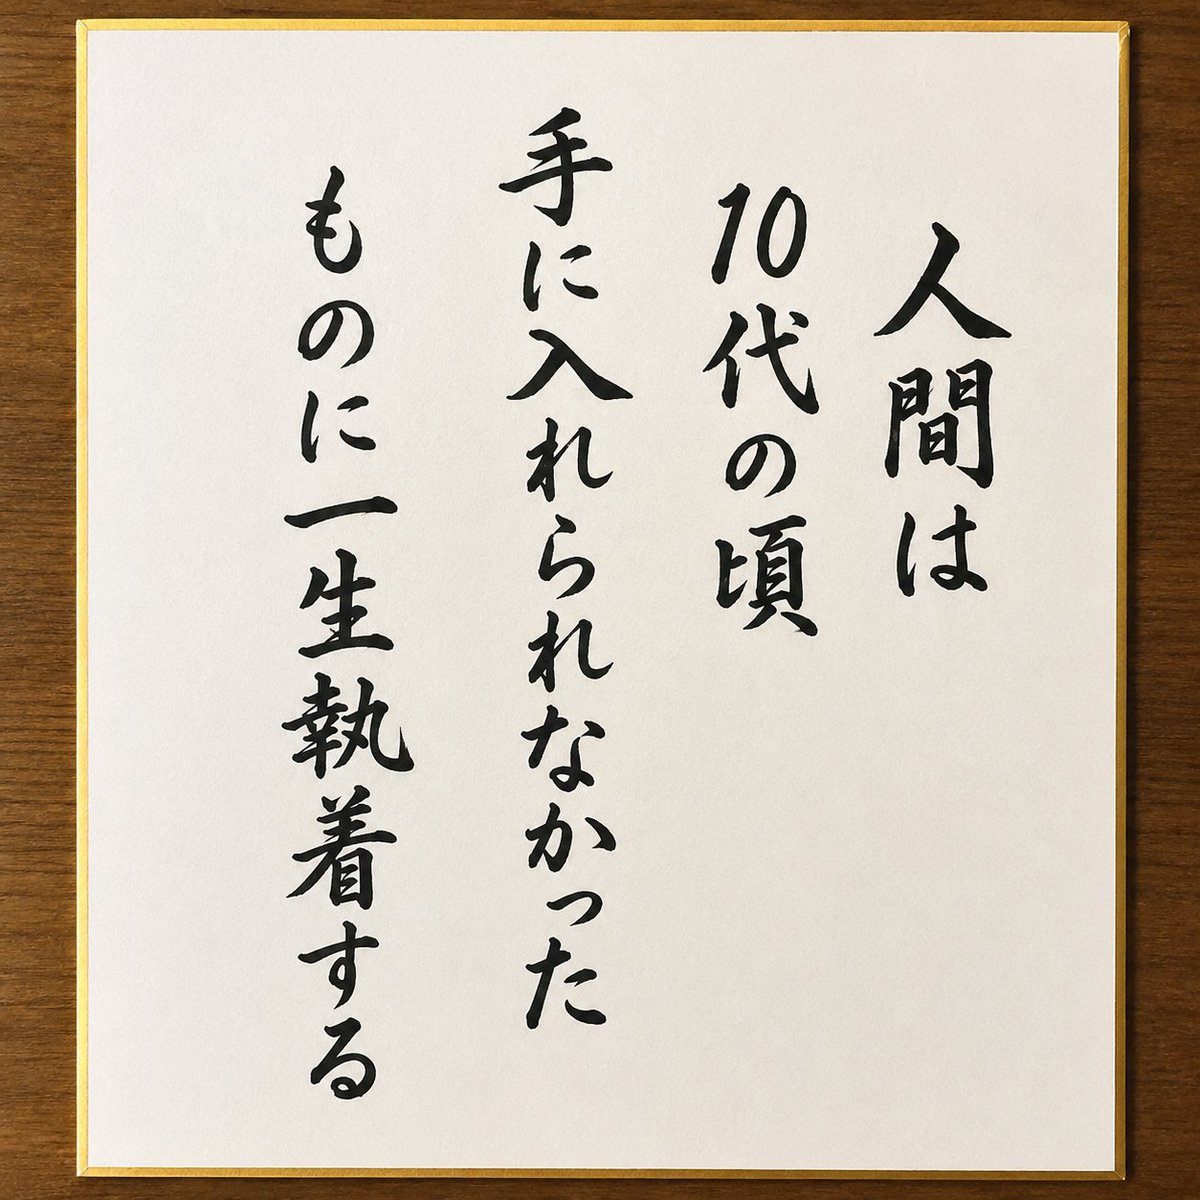 人間は
10代の頃
手に入れられなかった
ものに一生執着する